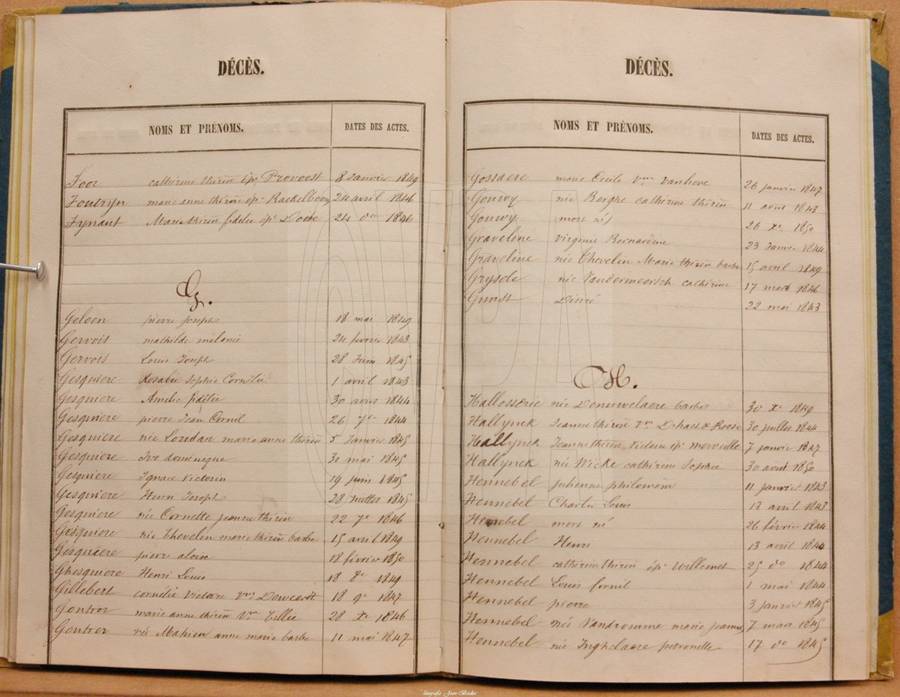 DÉCÈS.
NOMS ET PRÉNOMS. DATES DES ACTES.
catherine thérèse ép. Provoost 8 Janvier 1849
Foutryn marie anne thérèse ép. 24 avril 1846
Fynant Marie thérèse fidèle ép. 24 do 1846
G.
Geloen pierre joseph 18 mai 1849
Gervois mathilde mélanie 24 février 1843
Gervois Louis Joseph 28 Juin 1845
Gesquiere Rosalie Sophie Cornélie 1 avril 1843
Gesquiere Amélie fidélie 30 1844
Gesquiere pierre Jean Cornil 26 7e 1844
Gesquiere née Loridan marie anne thérèse 5 Janvier 1845
Gesquiere Ivo domenique 31 mai 1845
Gesquiere Ignace victorin 19 juin 1845
Gesquiere Henri Joseph 28 juillet 1845
Gesquiere née Cornette jeanne thérèse 22 7e 1846
Gesquiere née Chevelin marie thérèse barbe 15 avril 1849
Gesquiere pierre aloise 18 février 1850
Ghesquiere Henri Louis 18 8e 1849
Gillebert cornélie victoire Vve 18 9e 1847
Gontrer marie anne thérèse Vve 28 Xe 1846
Gontrer née Mahieu anne marie barbe 11 mai 1847
DÉCÈS.
NOMS ET PRÉNOMS. DATES DES ACTES.
Gossaere marie Cécile Vve Vanhove 26 janvier 1847
Gouwy née Berghe catherine thérèse 11 avril 1843
Gouwy mort né 26 Xe 1850
Graveline virginie 23 Janvier 1844
Graveline née Chevelin Marie thérèse barbe 15 avril 1849
Grysole née Vandermeersch catherine 17 1846
22 mai 1843
H.
née barbe 30 Xe 1849
Hallynck Jeanne thérèse Vve 30 juillet 1844
Hallynck Jeanne thérèse ép. 7 janvier 1847
Hallynck née Wicke catherine Sophie 30 1850
Hennebel julienne philomène 11 janvier 1843
Hennebel Charles Louis 18 avril 1843
Hennebel mort né 26 février 1844
Hennebel Henri 13 avril 1844
Hennebel catherine thérèse ép. Willemet 25 do 1844
Hennebel Louis 1 mai 1844
Hennebel pierre 3 janvier 1845
Hennebel née Vandromme marie jeanne 7 mars 1845
Hennebel née Inghelaere petronelle 17 do 1845